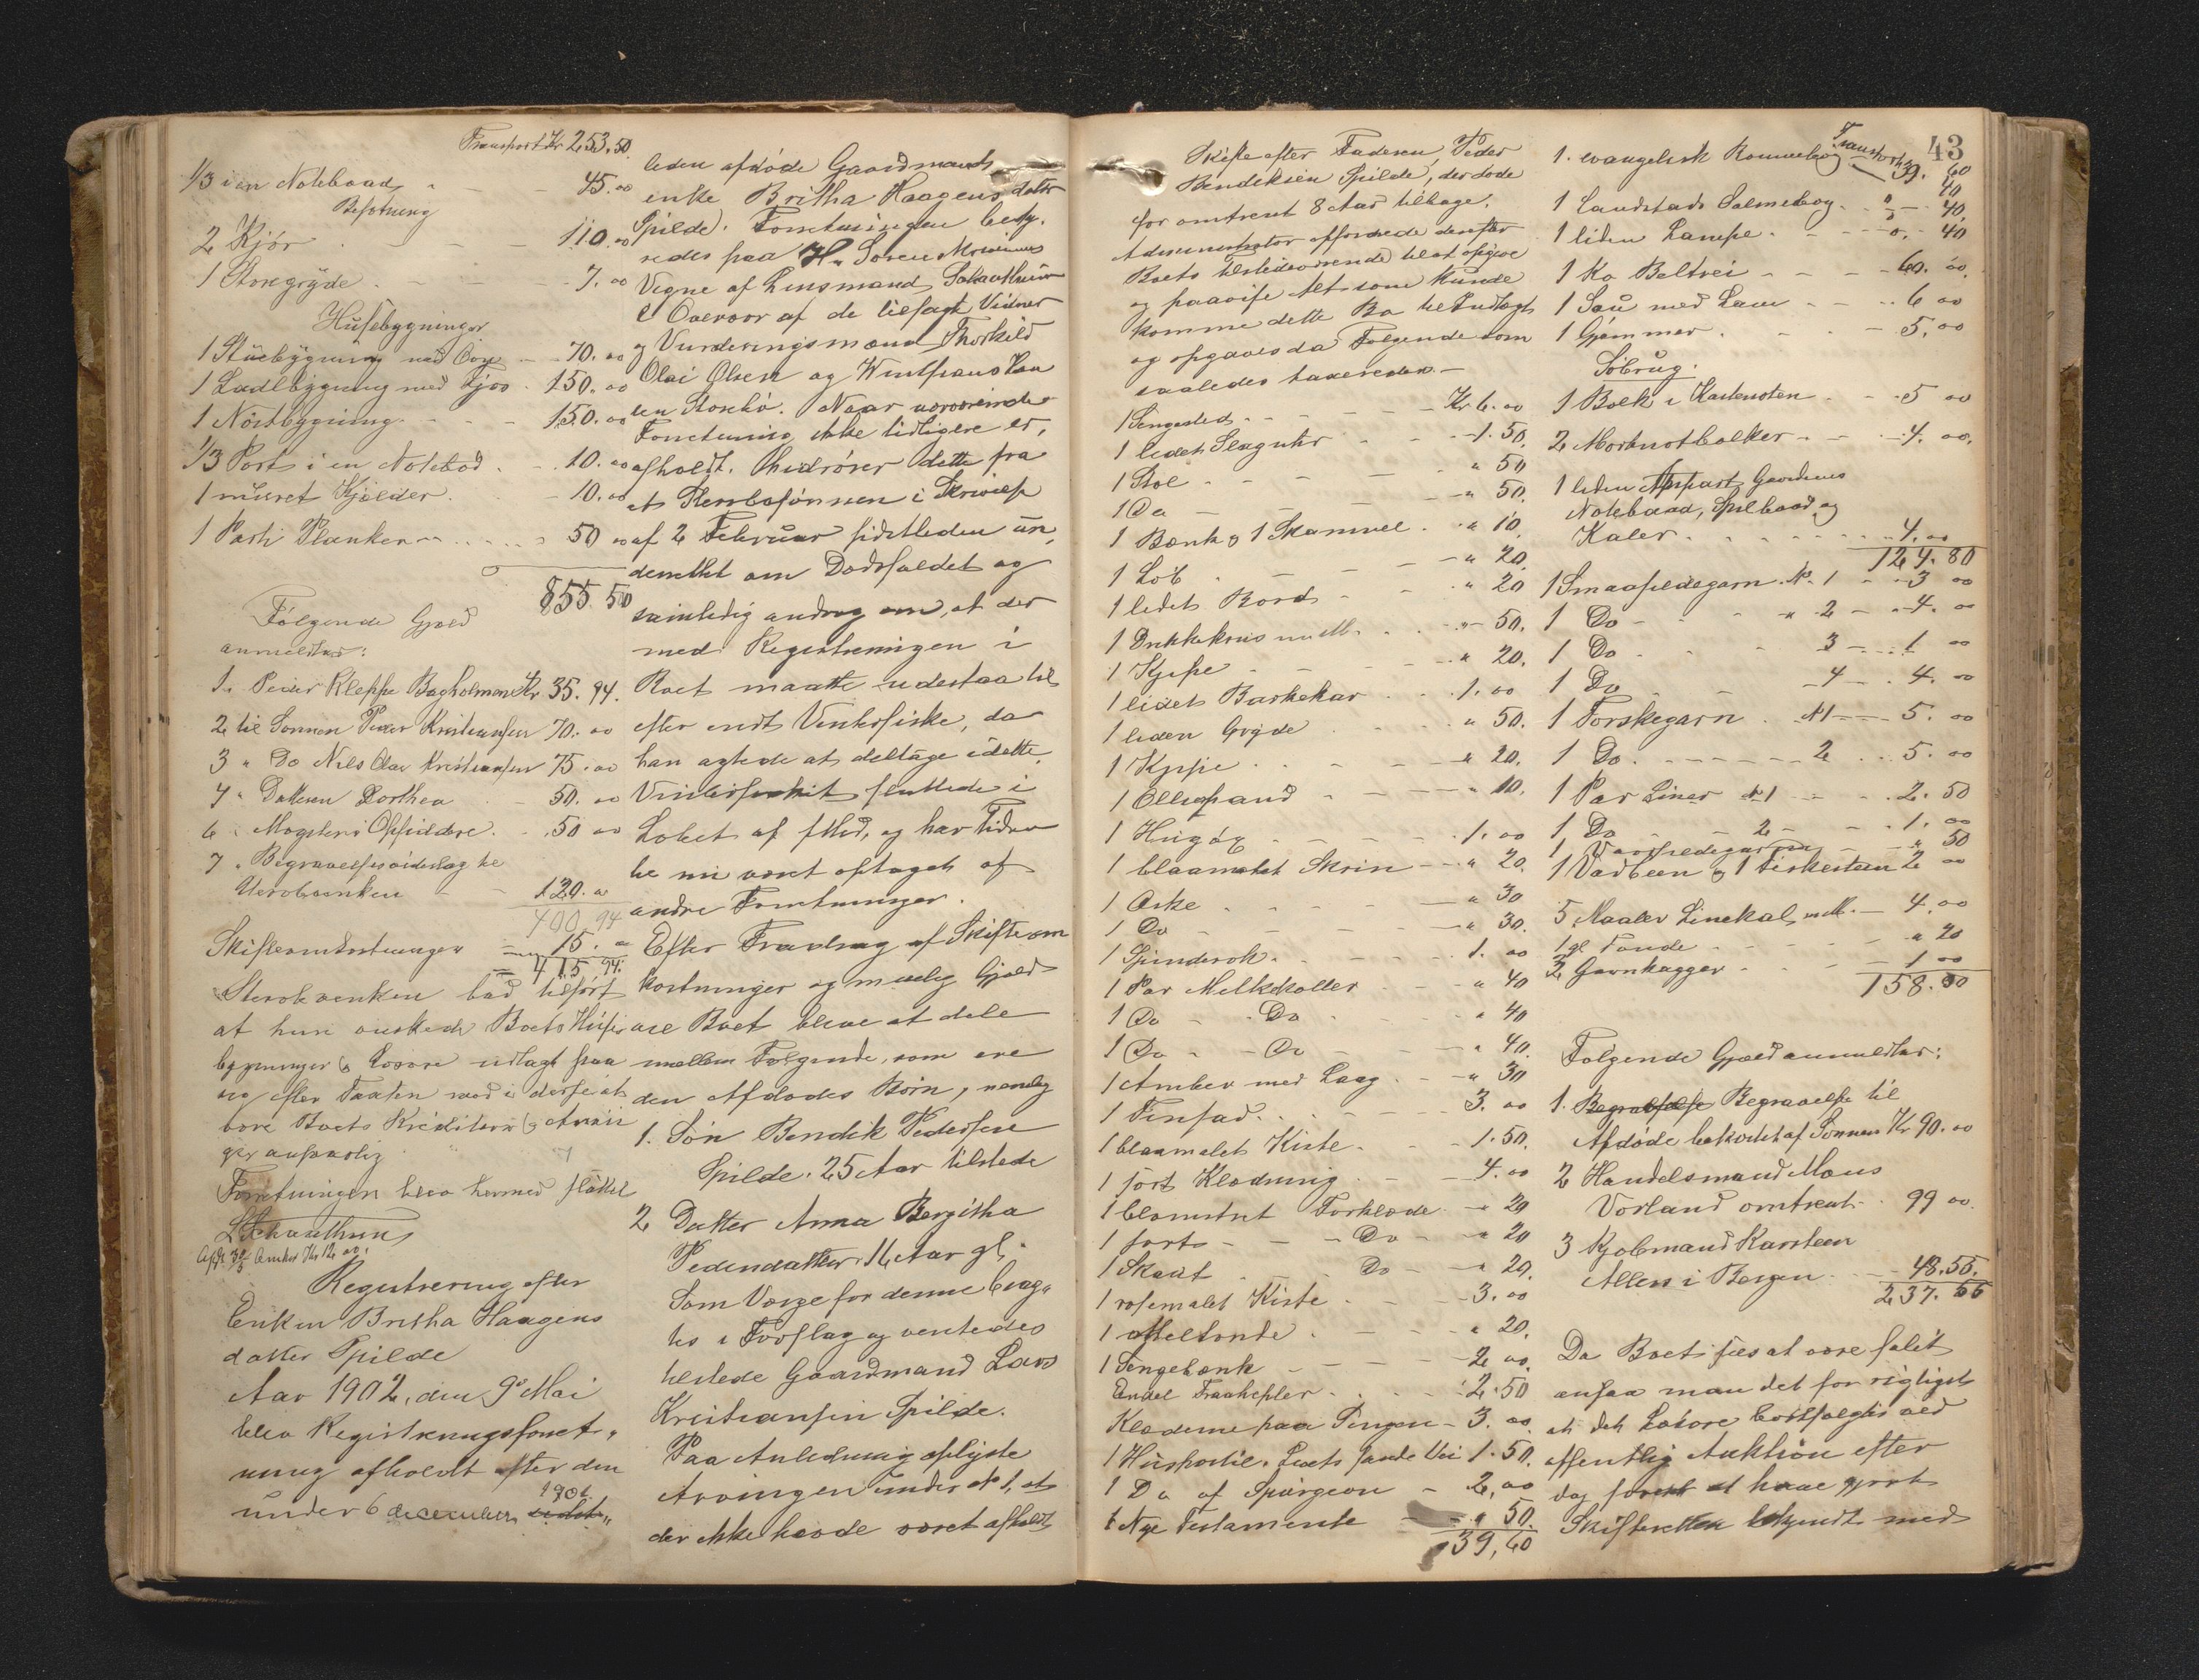 Transport Kr 253.50
1/3 i en Notebaad - - 45.00
Besætning
2 Kjör - - - 110.00
1 Storegryde - - - 7.00
Husebygninger
1 Stuebygning med Cov - 70.00
1 Ladebygning med Fjos - 150.00
1 Nöstbygning - - 150.00
1/3 Part i en Notebod - 10.00
1 muret Kjælder - 10.00
1 Parti Planker - - - 50 00
855.50
Følgende Gjæld
anmeldtes:
1. Peder Kleppe Bagholmen Kr 35.94.
2 til Sønnen Peder Kristiansen 70.00
3 " Do Nils Olai Kristiansen 75.00
4 " Datteren Dorthea - 50.00
6 " Opfødere - 50 00
7 " Begravelsesvederlag til
- - 120.00
400.94
Skifteomkostninger - 15.00
415.94.
bad tilført
at hun ønskede Boets Huse
bygninger & Løsøre udlagt paa
sig efter Taxten mod i derfor at
være Boets Kreditorer & Arvin
ger ansvarlig
Forretningen blev hermed sluttet
L Schanthun
Registrering efter
Enken Britha Haagens
datter Spilde
Aar 1902, den 9de Mai
blev Registreringsforret-
ning afholdt efter den
under 6 december 1901
leden afdøde Gaardmands
enke Britha Haagensdatter
Spilde. Forretningen besty-
redes paa H. Søren
Vegne af Lensmand Schanthun
i Overvær af de tilsagte Vidner
og Vurderingsmænd Thorkild
Olai Olsen og
Storebø. Naar nærværende
Forretning ikke tidligere er
afholdt, hidrører dette fra
at Stervbosønnen i Skrivelse
af 2 Februar sidstleden un-
derrettet om Dødsfaldet og
samtidig androg om, at der
med Registreringen i
Boet maatte udestaa til
efter endt Vinterfiske, da
han agtede at deltage i dette.
Vinterfisket sluttede i
Løbet af April, og har siden
til nu været optaget af
andre Forretninger.
Efter Fradrag af Skifteom
kostninger og mulig Gjæld
vil Boet blive at dele
mellem Følgende, som ere
den Afdødes Børn, nemlig
1. Søn Bendik Pedersen
Spilde, 25 Aar tilstede
2 Datter Anna Bergitha
Pedersdatter 16 Aar gl.
Som Værge for denne brag-
tes i Forslag og ventedes
tilstede Gaardmand Lars
Kristiansen Spilde.
Paa Anledning oplyste
Arvingen under No 1, at
der ikke havde været afholdt
43
Skifte efter Faderen Peder
Bendiksen Spilde, der døde
for omtrent 8 Aar tilbage.
Administrator opfordrede derefter
Boets tilstedeværende til at opgive
og paavise Alt som kunde
komme dette Bo til Indtægt
og opgaves da Følgende som
saaledes taxeredes -
1 Sengested - - - Kr 6.00
1 lidet Slaguhr - - 1.50.
1 Stol - - - " 50
1 Do - - - " 50.
1 Bænk & 1 Skammel - " 10.
1 Löb - - - " 20.
1 lidet Bord - - " 20
1 Drikkekrus m.M. - - " 50.
1 Kjipe - - - " 20.
1 lidet Barkekar - - 1.00
1 liden Gryde - - " 50.
1 Kjipe - - - " 20.
1 Ølspand - - - " 10.
1 Hugøx - - - 1.00
1 blaamalet Skrin - - " 20.
1 Æske - - - " 30
1 Do - - - " 30.
1 Spinderok - - - 1.00
1 Par Melkekoller - - " 40
1 Do - Do - - " 40
1 Do - Do - - " 40.
1 Amber med Laag - - " 30
1 Tinfad - - - 3.00
1 blaamalet Kiste - - 1.50.
1 sort Klædning - - 4.00
1 blomstret Forklæde - " 20
1 sort - - Do - " 20
1 Skaut - - Do - " 20.
1 rosemalet Kiste - - 3.00
1 Meltønde - - - " 20.
1 Sengebænk - - - 2.00.
Endel Træhepler - - 2.50
Klæderne paa Sengen - 3.00.
1 Huspostil. Livets sande Vei 1.50.
1 Do af Spurgeon - 2.00
1 Nye Testamente - " 50.
39,60
Transport 39.60
1. evangelisk Rønnebog - 40
1 Landstads Salmebog - " 40.
1 liden Lampe - - " 40
1 Ko Beltrei - - - 60.00.
1 Sau med Lam - - 6 00
1 Gjømmer - - - 5.00
Söbrug.
1 Bolk i Kastenoten - - 5 00
2 Morknotbolker - - 4.00.
1 liden Appart Gaardens
Notebaad, Spilbaad og
Kaler - - - - 4.00
124.80
1 Smaasildegarn No. 1 - 3 00
1 Do - - " 2 - 4.00
1 Do - - 3 - 1 00
1 Do - - 4 - 4.00
1 Torskegarn - No 1 - 5.00
1 Do - - - 2 - 5.00
1 Par Liner No 1 - - 2.50
1 Do - - 2 - - 1.00
1 Vaarsildegarn - " 50
1 Vadbeen & 1 Fiskesteen 2 00
5 Naaler Linekal m.M. - 4.00
1 gl Tønde - - - " 20
2 Garnkagger - - - 1 00
158.00
Følgende Gjæld anmeldtes:
1. Begravelse til
Afdøde bekostet af Sønnen Kr 90.00
2 Handelsmand Mons
Vorland omtrent - 99 00.
3 Kjøbmand Karsteen
Allen i Bergen - 48.55.
237.55
Da Boet sees at være falit
ansaa man det for rigtigst
at det Løsøre bortsælges ved
offentlig Auktion efter
dog først at have gjort
Skifteretten bekjendt med